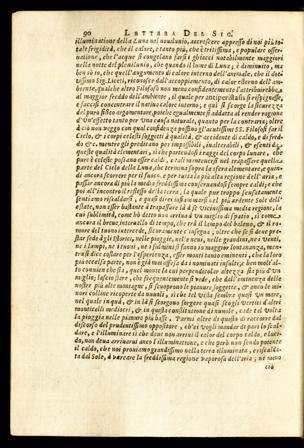 90 LETTERA DEL SIG.
illuminatione della Luna nel nouilunio, accrescere appresso di noi più to-
tale frigidità, che il calore, e tanto più, che è trittissima, e popolare osser-
uatione, che l'acque si congelano farsi ghiacci notabilmente maggiori
nella notte del plenilunio, che quando il lume di Luna, è diminuito, ma
ben sò io, che quell'argumento di calore interno dell'animale, che il dot-
tissimo Sig. Liceti, riconosce dall'accoppiamento, di calor esterno dell'am-
biente, qualche altro Filosofo non meno confidentemente l'attribuirebbe,
al maggior freddo dell'ambiente, il quale per antiperistasi si respignesse,
e facesse concentrare il natiuo calore interno; e quì si scorga la sicurezza
del puro fisico argumentare, poiche egualmente si adatta al render ragione
d'vn'effetto tanto per vna causa naturale, quanto per la contraria; oltre
à ciò non veggo con qual confidenza possino gl'auttoritatiui SS. Filosofi far il
Cielo, & i corpi celesti soggetti à qualità, & accidente di caldo, e di fred-
do &c. mentre gli predicano per impassibili, inalterabili, & essenti da
queste qualità elementari, si che partendosi i raggi del corpo lunare, che
pure è celeste possano esser caldi, e tali mantenersi nel trapassare quella
parte del Cielo della Luna, che termina sopra la sfera elementare, e quin-
di ancora scorrere per il fuoco, e per tutta la più alta regione dell'aria, e
passar ancora di più la media freddissima conseruandosi sempre caldi, e che
poi all'incontro il reflesso della terra, la quale pur troppo sensatamente
sentiamo riscaldarsi, e quasi direi infiammarsi nel più ardente Sole dell'
estate, non esser bastante à trapassare sù à la vicinissima media regione, la
cui sublimità, come hò detto non arriua à vn miglio di spatio, sì come
ancora il breue interuallo di tempo, che trà il lampo del baleno, & il ro-
more del tuono intercede, sicuramente c'insegna; oltre che sì sì deue pre-
star fede à gli Historici, nelle pioggie, nelle neui, nelle grandini, ne i venti,
ne i lampi, ne i tuoni, ne i fulmini sono in maggior lontananza, men-
tre sì dice costare per l'esperienza, esser monti tanto eminenti, che la loro
più eccelsa parte, non è già mai offesa da i nominati insulti; e ben molt'al-
to conuien che sia, quel monte la cui perpendicolar altezza sia più d'vn
miglio; lascio stare, che frequentemente si vede, che dall'eminenza delle
nostre più alte montagne, si scuoprono le pianure soggette, & anco le mi-
nori colline ricoperte da nuuoli, sì che tal volta sembra quasi vn mare,
nel quale in quà, & in là si scorgono sorgere quasi scogli vertici di altri
monticelli mediocri, & in questa constitutione di nuuole, cade tal volta
la pioggia nelle pianure più basse. Parmi oltre di questo di raccorre dal
discorso del prudentissimo oppositore, ch'ei vogli mondar di pari lo scal-
dare, e l'illuminare sì che doue non arriui il calor del corpo caldo, e luci-
do, non deua arriuarui anco l'illuminatione, e che però non sendo potente
il caldo, che noi prouiamo grandissimo nella terra illuminata, e riscalda-
ta dal Sole, à varcare la freddissima regione vaporosa dell'aria; ne meno
ciò